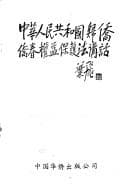 中華人民共和國歸僑
僑眷權益保護法講話
葉飛
中国华侨出版公司